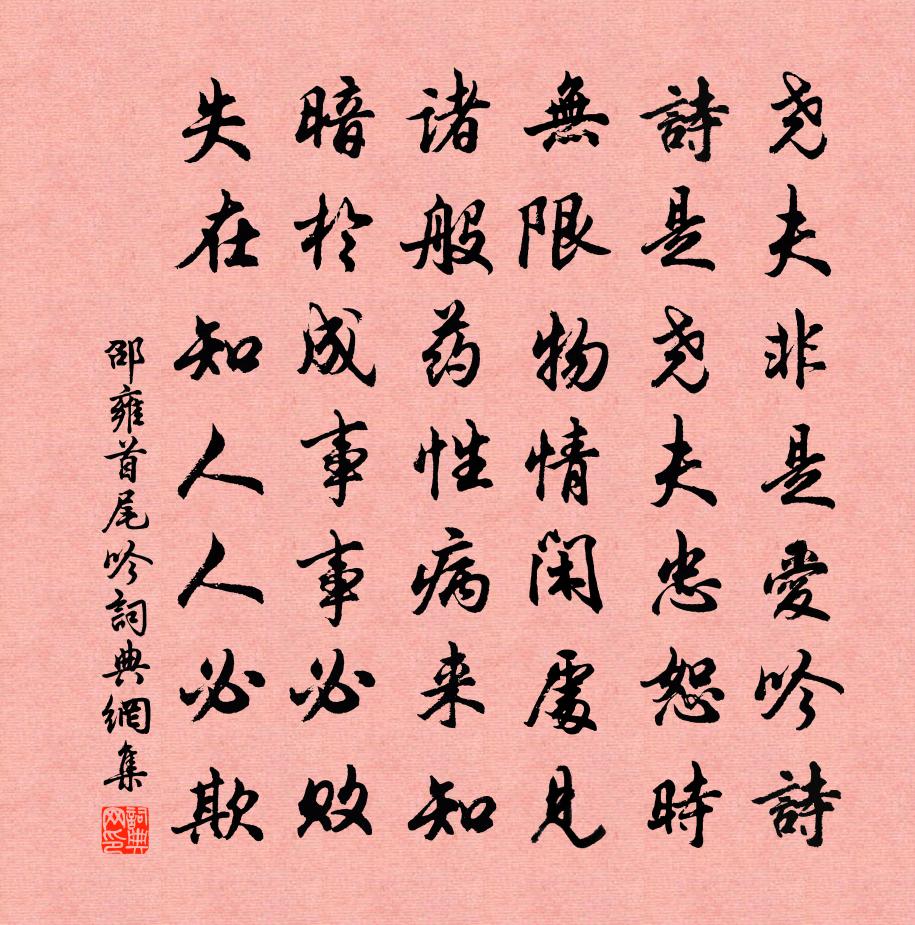 尧夫非是愛吟詩
詩是尧夫忠恕時
無限物情閑處見
诸般药性病来知
暗於成事事必败
失在知人人必欺
邵雍首尾吟詞典網集
詞典网印